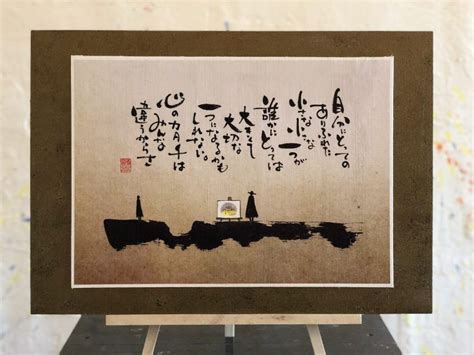 自分にとっての
ありふれた
小さな小さな一つが
誰かにとっては
大きくて
大切な
一つになるかも
しれない。
心のカタチは
みんな
違うからさ